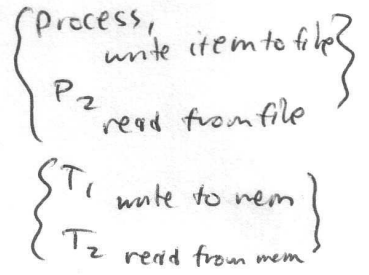 Process,
write item to file
P2
read from file
T1
write to mem
T2
read from mem